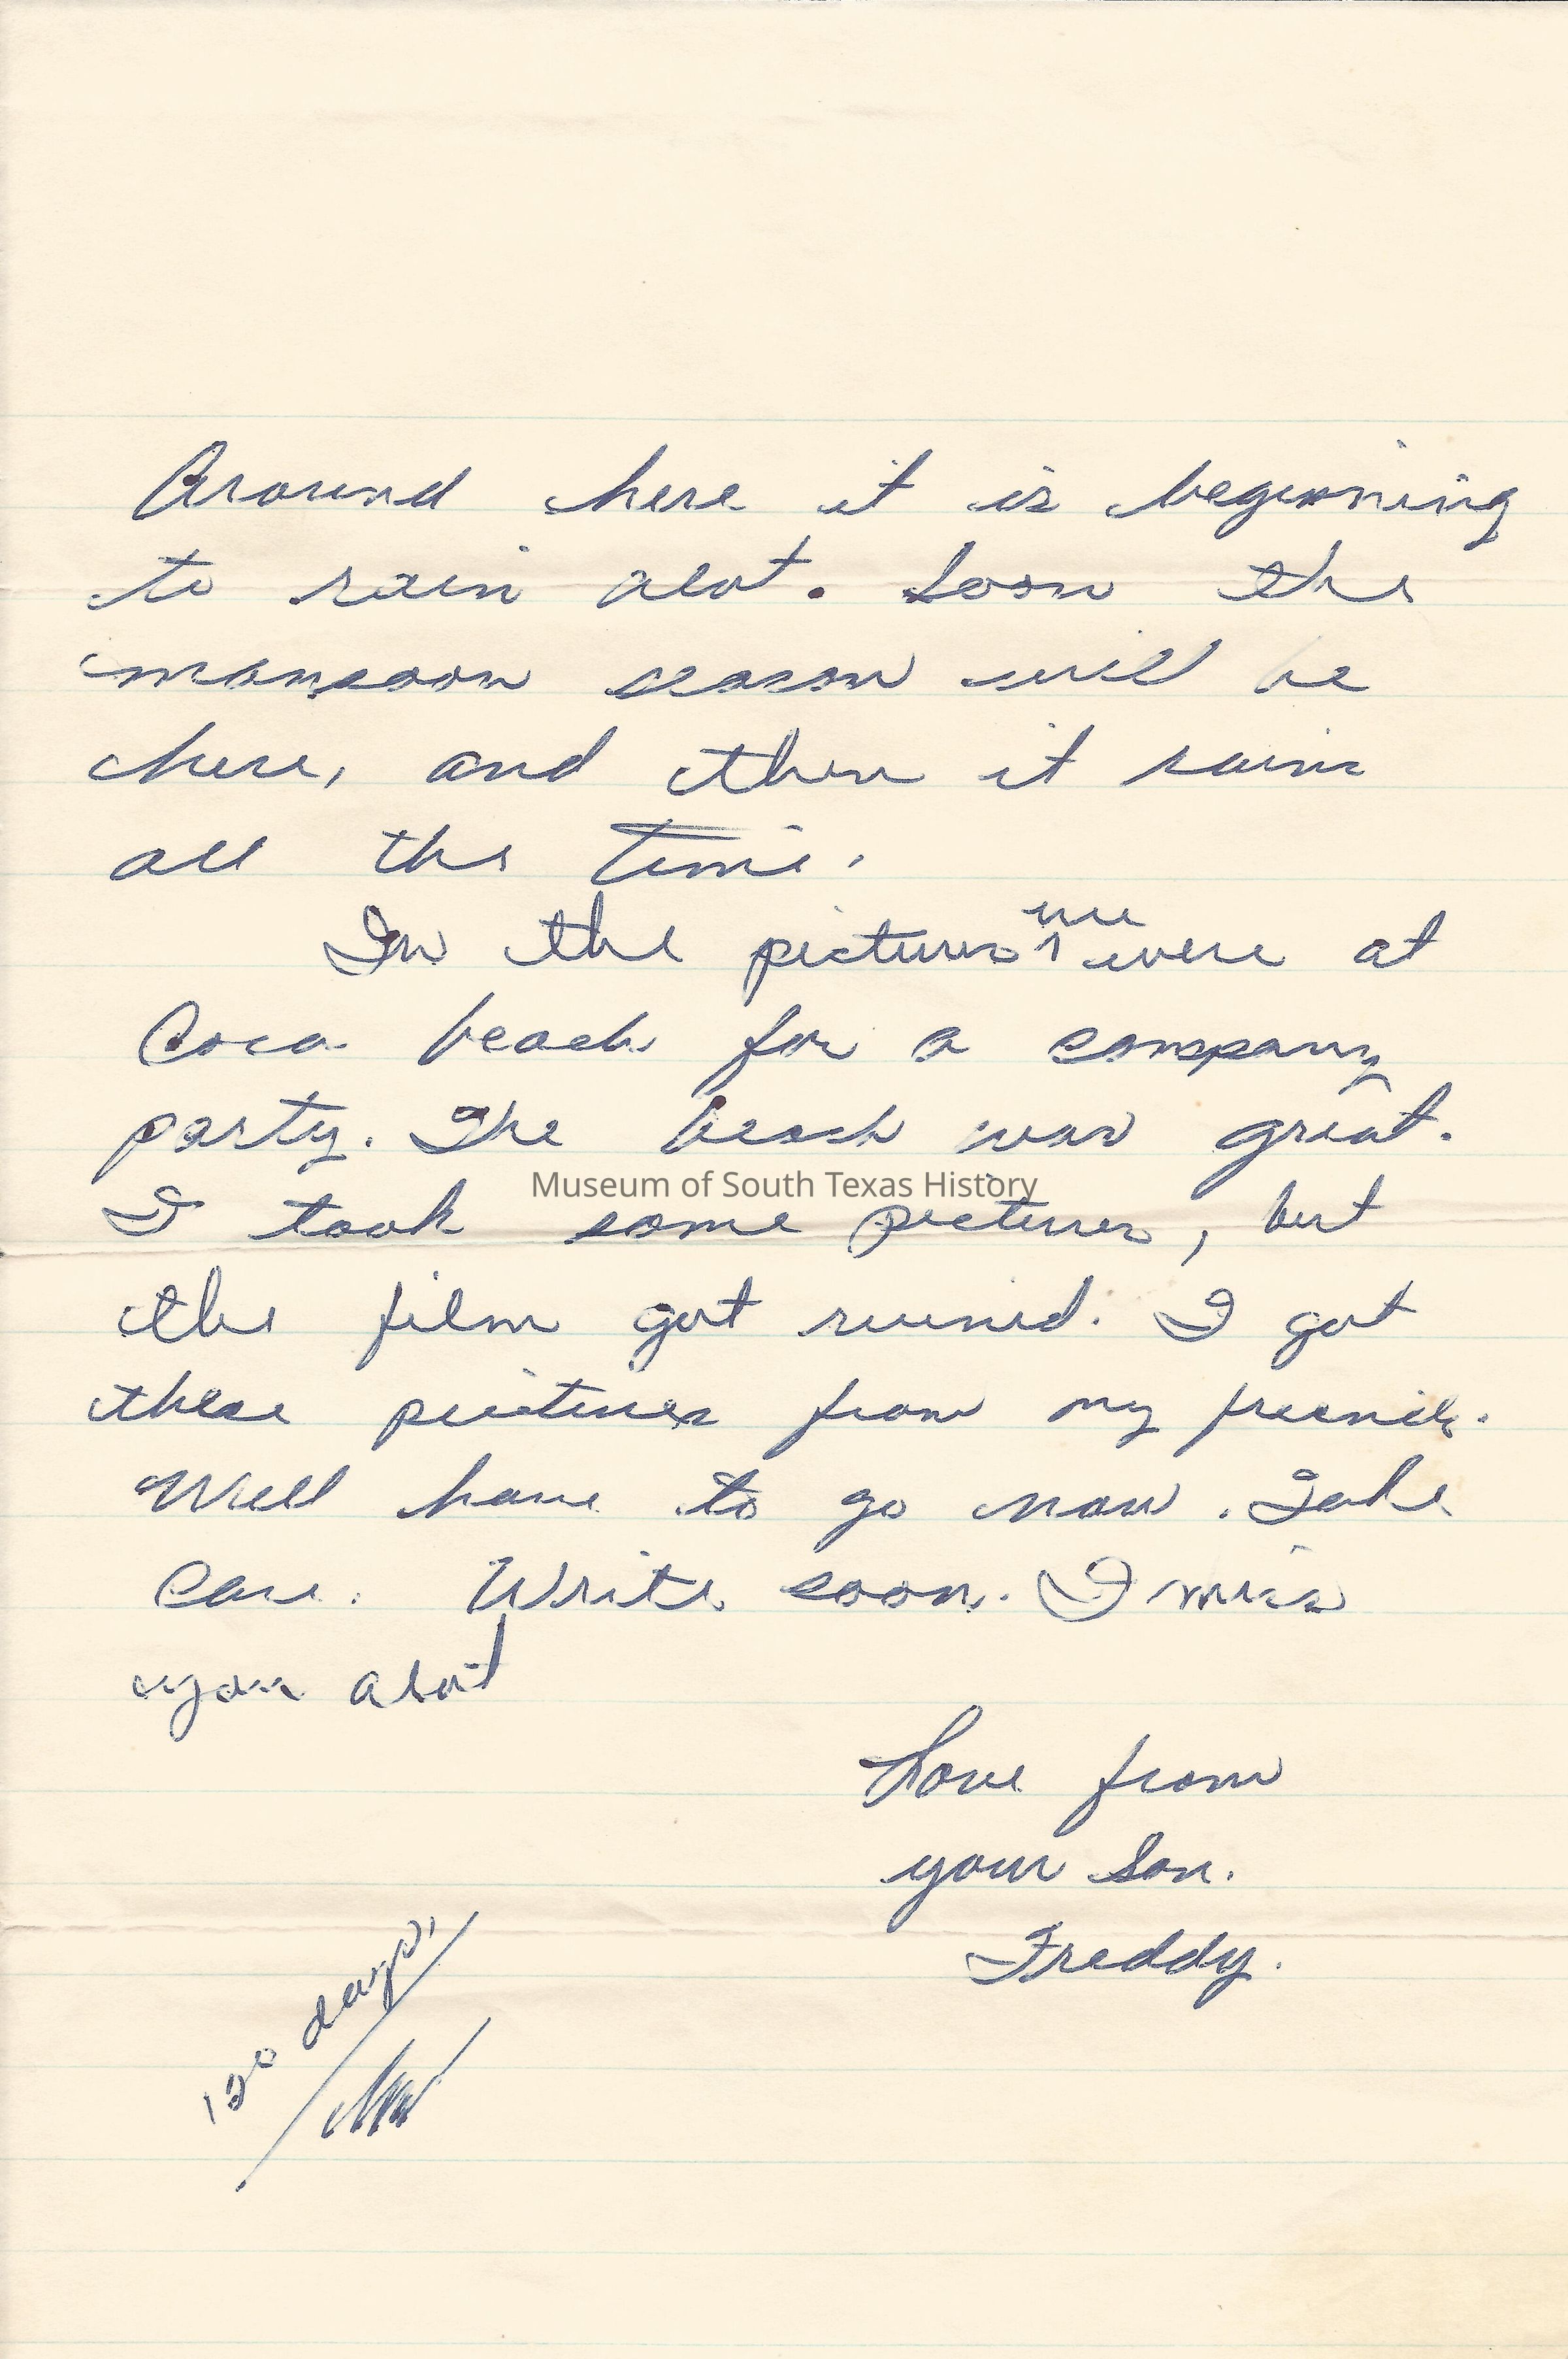 Around here it is beginning
to rain alot. Soon the
monsoon season will be
here, and then it rains
all the time.
In the pictures we were at
Coca beach for a company
party. The beach was great.
Museum of South Texas History
I took some pictures, but
the film got ruined. I got
these pictures from my friends.
Well have to go now. Take
Care. Write soon. I miss
you alot
Love from
your Son.
Freddy.
120 days,